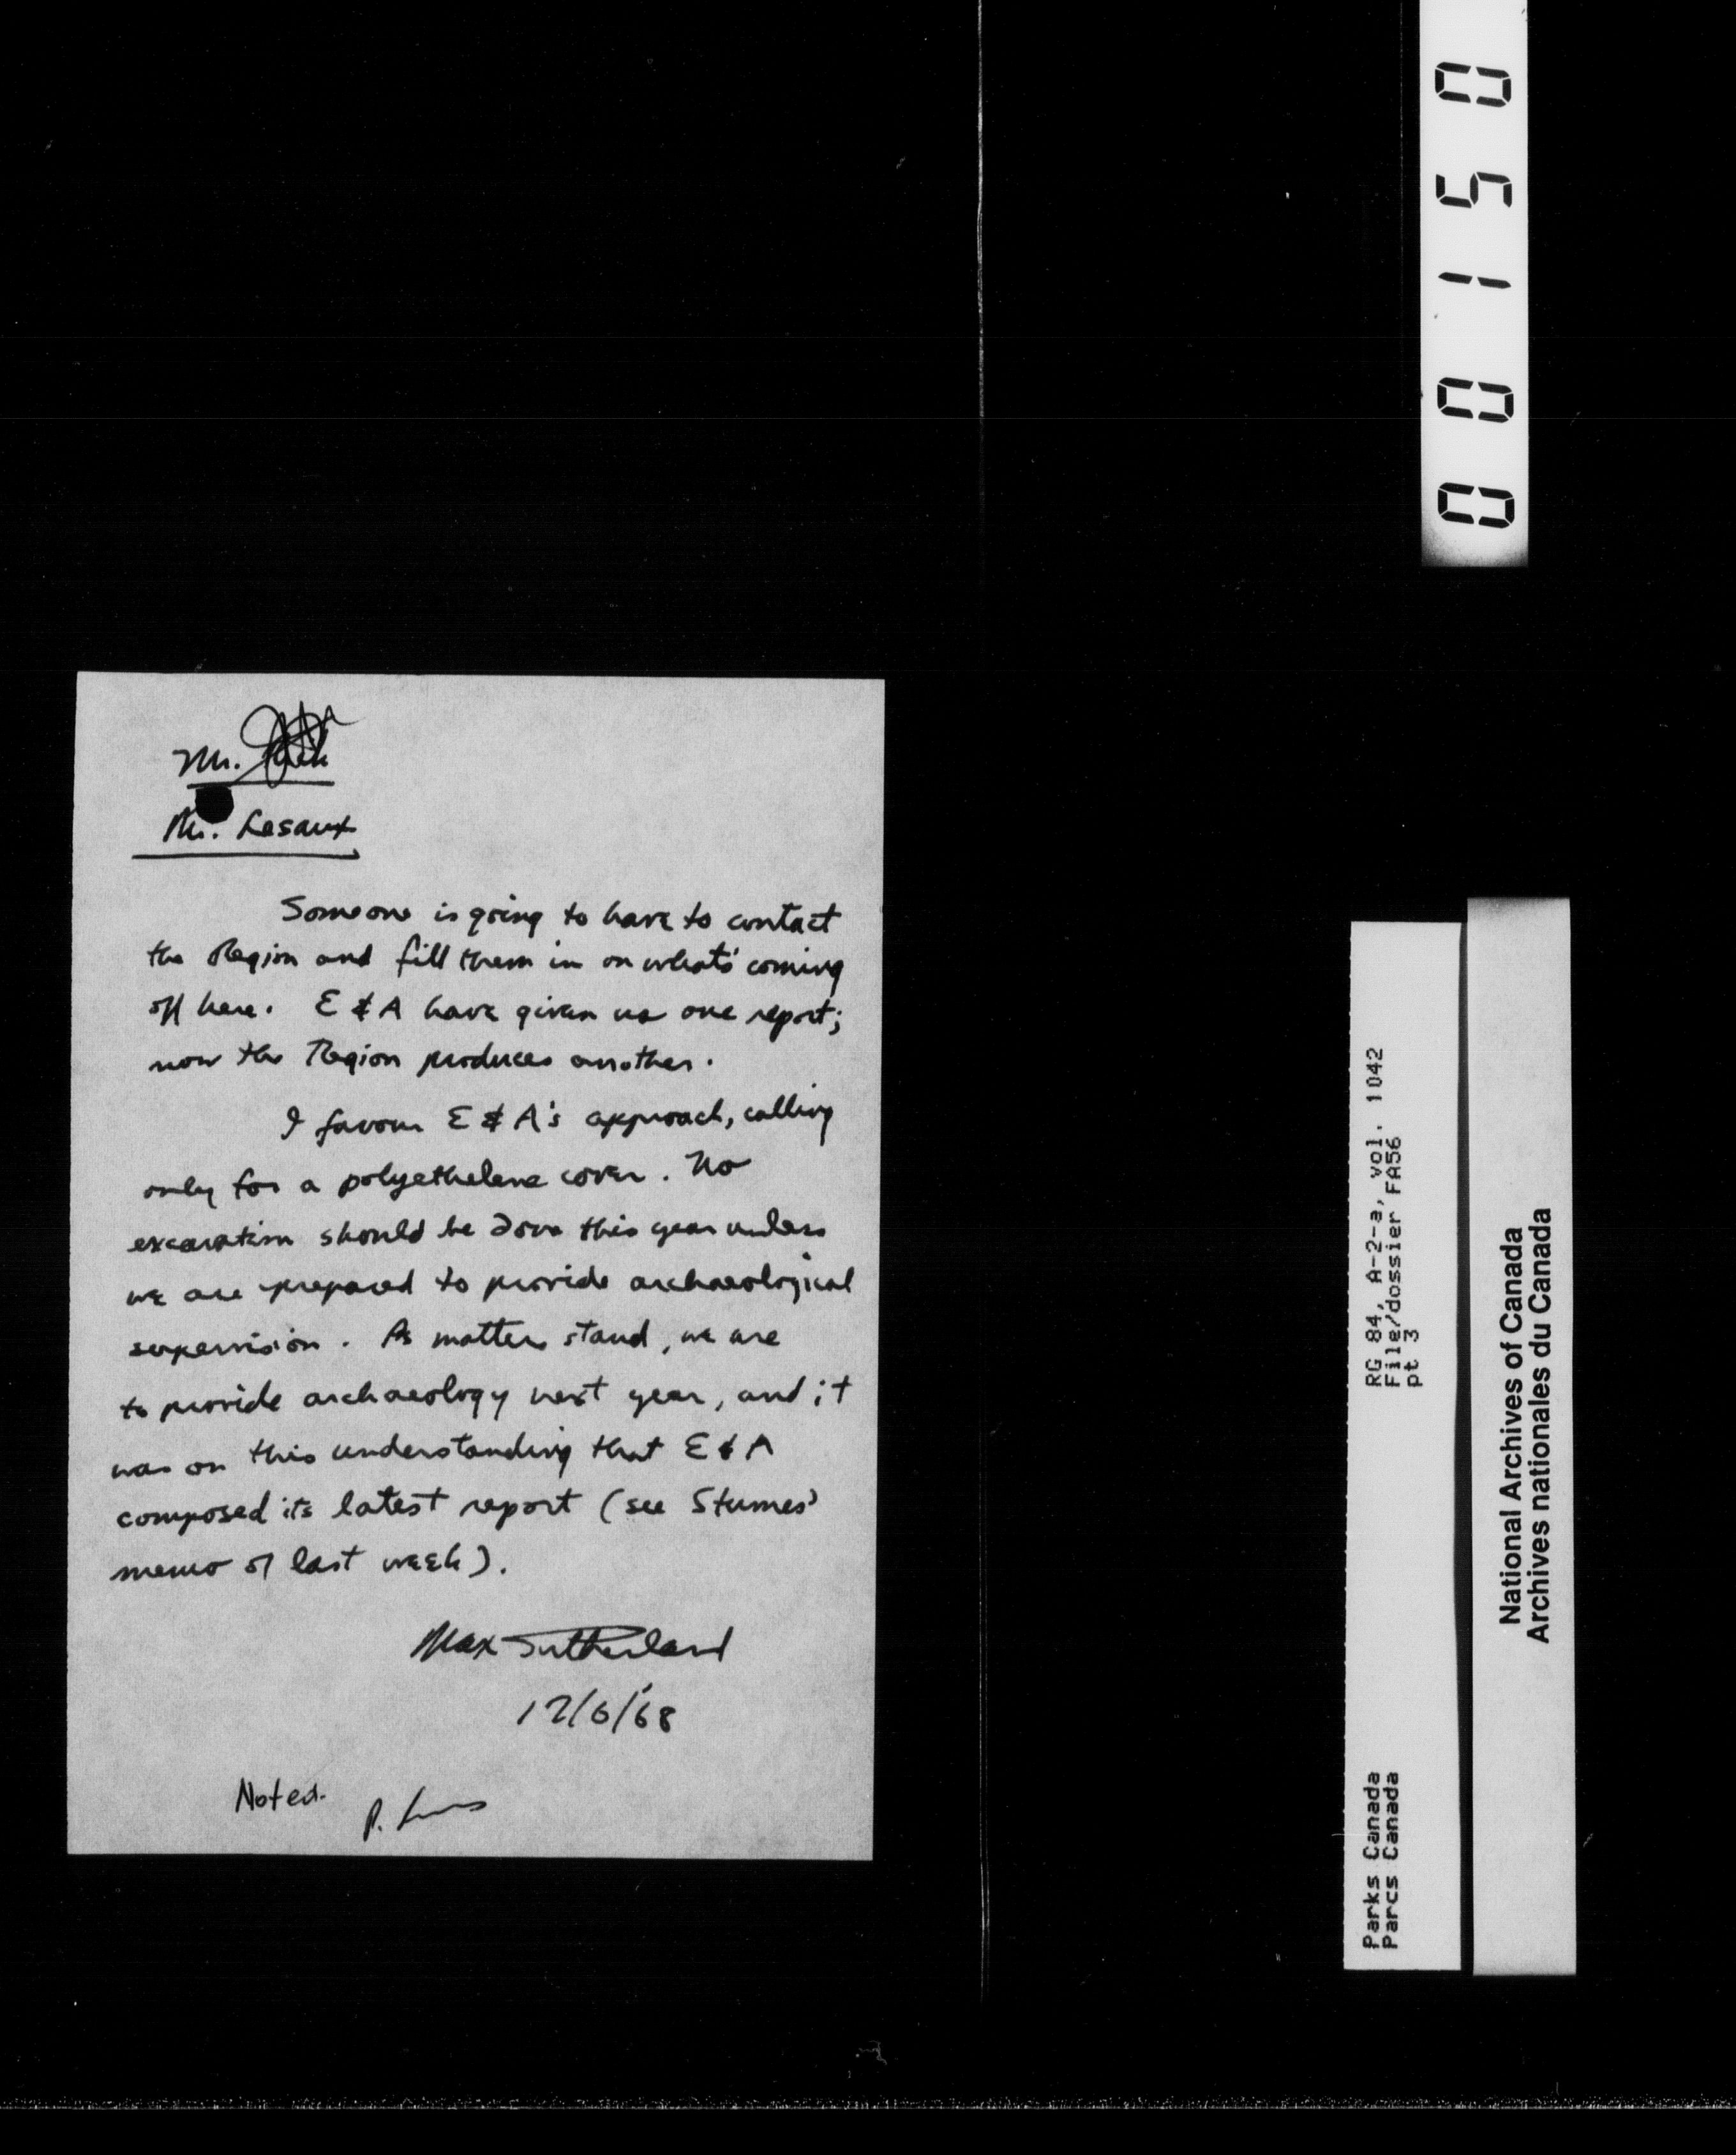 Mr.
Mr. Lesaux
Someone is going to have to contact
the Region and fill them in on what's coming
off here. E & A have given us one report;
now the Region produces another.
I favour E & A's approach, calling
only for a polyethelene cover. No
excavation should be done this year unless
we are prepared to provide archaeological
supervision. As matters stand, we are
to provide archaeology next year, and it
was on this understanding that E & A
composed its latest report (see Stumes'
memo of last week).
Max Sutherland
12/6/68
Noted.
P.
00150
RG 84, A-2-a, vol. 1042
File/dossier FA56
pt 3
Parks Canada
Parcs Canada
National Archives of Canada
Archives nationales du Canada